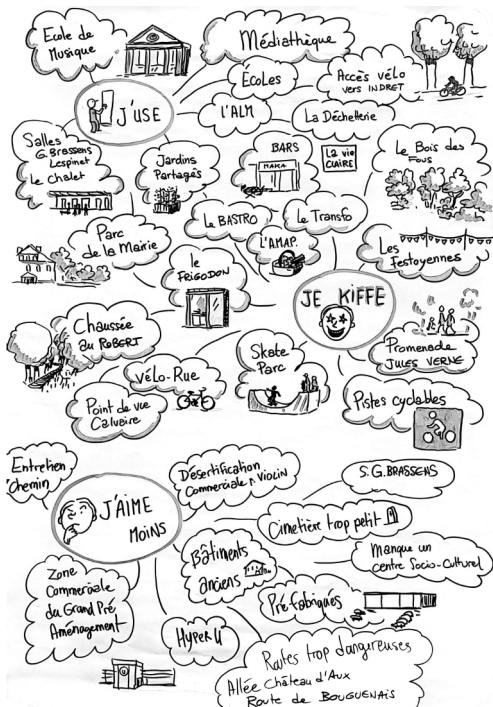 Ecole de
Musique
Médiathèque
Écoles
Accès vélo
vers INDRET
J'USE
L'ALM
La Déchetterie
Salles
G. Brassens
Lespinet
Le Chalet
Jardins
Partagés
BARS
MAKA
La vie
CLAIRE
Le Bois des
Fous
Parc
de la Mairie
Le BASTRO
Le Transfo
L'AMAP.
Les
Festoyennes
le
FRIGODON
JE KIFFE
Chaussée
au ROBERT
Skate
Parc
Promenade
JULES VERNE
Vélo-Rue
Point de vue
Calvaire
Pistes cyclables
Entretien
Chemin
Désertification
Commerciale r. VIOLIN
S. G. BRASSENS
J'AIME
MOINS
Cimetière trop petit
Bâtiments
anciens
Manque un
centre Socio-Culturel
Zone
Commerciale
du Grand Pré
Aménagement
Préfabriqués
Hyper U
Routes trop dangereuses
Allée Château d'Aux
Route de BOUGUENAIS